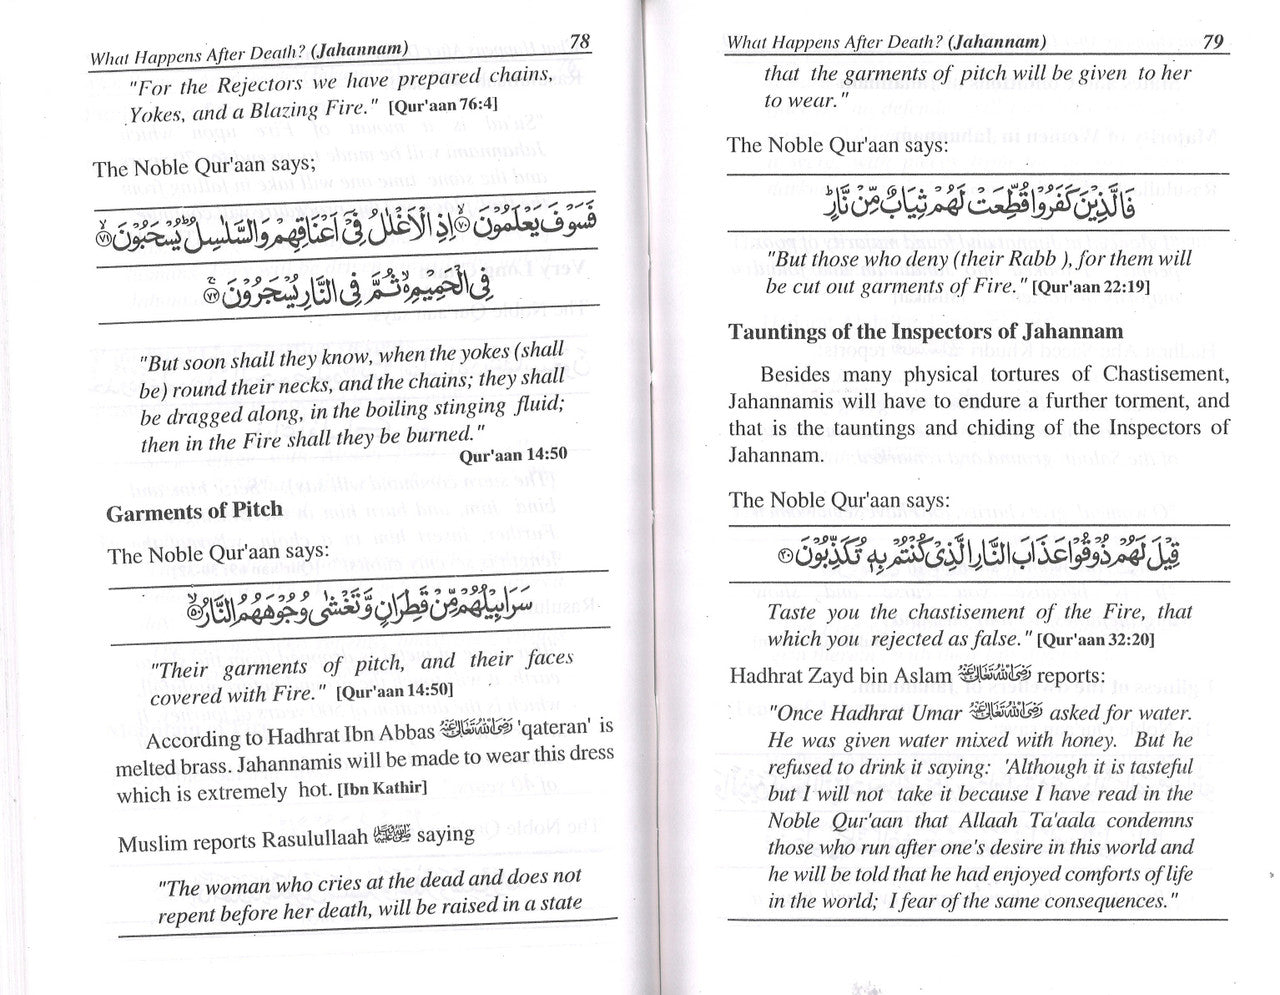 What Happens After Death? (Jahannam) 78
"For the Rejectors we have prepared chains,
Yokes, and a Blazing Fire." [Qur'aan 76:4]
The Noble Qur'aan says;
فَسَوْفَ يَعْلَمُوْنَ ﴿٧٠﴾ اِذِ الْاَغْلٰلُ فِىْٓ اَعْنَاقِهِمْ وَالسَّلٰسِلُ يُسْحَبُوْنَ ﴿٧١﴾
فِى الْحَمِيْمِ ثُمَّ فِى النَّارِ يُسْجَرُوْنَ ﴿٧٢﴾
"But soon shall they know, when the yokes (shall
be) round their necks, and the chains; they shall
be dragged along, in the boiling stinging fluid;
then in the Fire shall they be burned."
Qur'aan 14:50
Garments of Pitch
The Noble Qur'aan says:
سَرَابِيْلُهُمْ مِّنْ قَطِرَانٍ وَّتَغْشٰى وُجُوْهَهُمُ النَّارُ ﴿٥٠﴾
"Their garments of pitch, and their faces
covered with Fire." [Qur'aan 14:50]
According to Hadhrat Ibn Abbas رضى الله تعالى عنه 'qateran' is
melted brass. Jahannamis will be made to wear this dress
which is extremely hot. [Ibn Kathir]
Muslim reports Rasulullaah ﷺ saying
"The woman who cries at the dead and does not
repent before her death, will be raised in a state
What Happens After Death? (Jahannam) 79
that the garments of pitch will be given to her
to wear."
The Noble Qur'aan says:
فَالَّذِيْنَ كَفَرُوْا قُطِّعَتْ لَهُمْ ثِيَابٌ مِّنْ نَّارٍ
"But those who deny (their Rabb ), for them will
be cut out garments of Fire." [Qur'aan 22:19]
Tauntings of the Inspectors of Jahannam
Besides many physical tortures of Chastisement,
Jahannamis will have to endure a further torment, and
that is the tauntings and chiding of the Inspectors of
Jahannam.
The Noble Qur'aan says:
قِيْلَ لَهُمْ ذُوْقُوْا عَذَابَ النَّارِ الَّذِىْ كُنْتُمْ بِهٖ تُكَذِّبُوْنَ ﴿٢٠﴾
Taste you the chastisement of the Fire, that
which you rejected as false." [Qur'aan 32:20]
Hadhrat Zayd bin Aslam رضى الله تعالى عنه reports:
"Once Hadhrat Umar رضى الله تعالى عنه asked for water.
He was given water mixed with honey. But he
refused to drink it saying: 'Although it is tasteful
but I will not take it because I have read in the
Noble Qur'aan that Allaah Ta'aala condemns
those who run after one's desire in this world and
he will be told that he had enjoyed comforts of life
in the world; I fear of the same consequences."